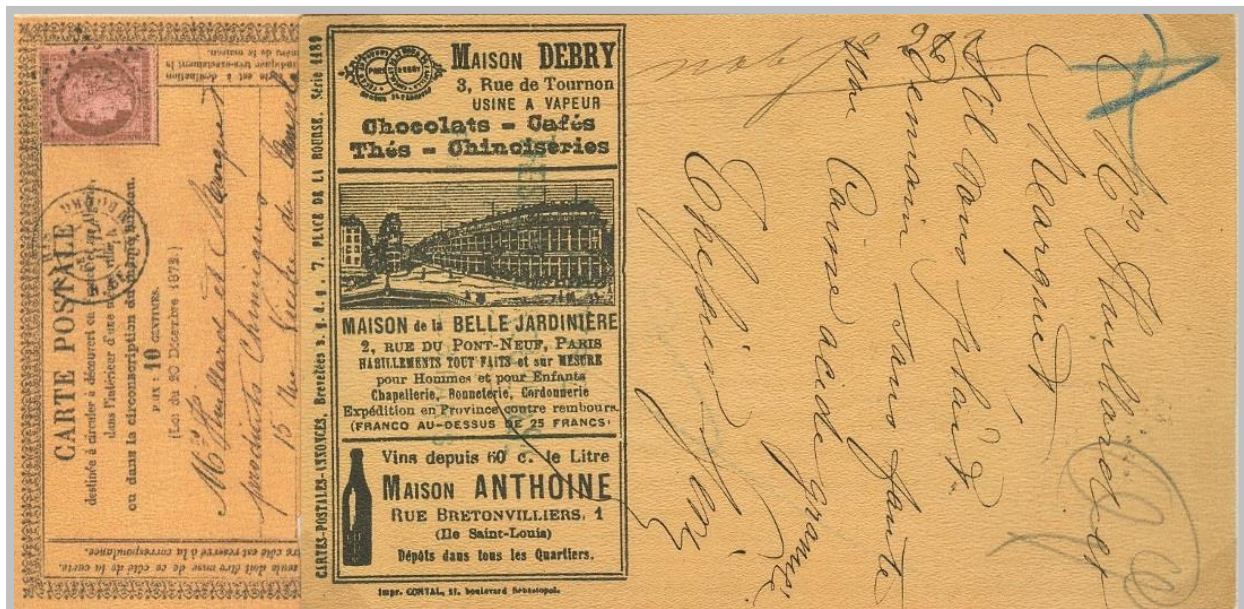 CARTE POSTALE
destinée à circuler à découvert en
dans l'intérieur d'une même ville
ou dans la circonscription du même Bureau.
PRIX : 10 CENTIMES.
(Loi du 20 Décembre 1872.)
Mrs Huillard et
produits Chimiques
15 rue Vieille du
est à destination
indiquer très-exactement le
numéro de la maison.
seule doit être mise de ce côté de la carte.
côté est réservé à la correspondance.
CARTES-POSTALES-ANNONCES, Brevetées s. g. d. g., 7, PLACE DE LA BOURSE. Série 1180
MAISON DEBRY
3, Rue de Tournon
USINE A VAPEUR
Chocolats - Cafés
Thés - Chinoiseries
MAISON de la BELLE JARDINIÈRE
2, RUE DU PONT-NEUF, PARIS
HABILLEMENTS TOUT FAITS et sur MESURE
pour Hommes et pour Enfants
Chapellerie, Bonneterie, Cordonnerie
Expédition en Province contre rembours.
(FRANCO AU-DESSUS DE 25 FRANCS)
Vins depuis 60 c. le Litre
MAISON ANTHOINE
RUE BRETONVILLIERS, 1
(Ile Saint-Louis)
Dépôts dans tous les Quartiers.
Impr. CONTAL, 17, boulevard Sébastopol.
Mrs Huillard et
S'il vous plaît
Demain sans faute
Une Caisse acide